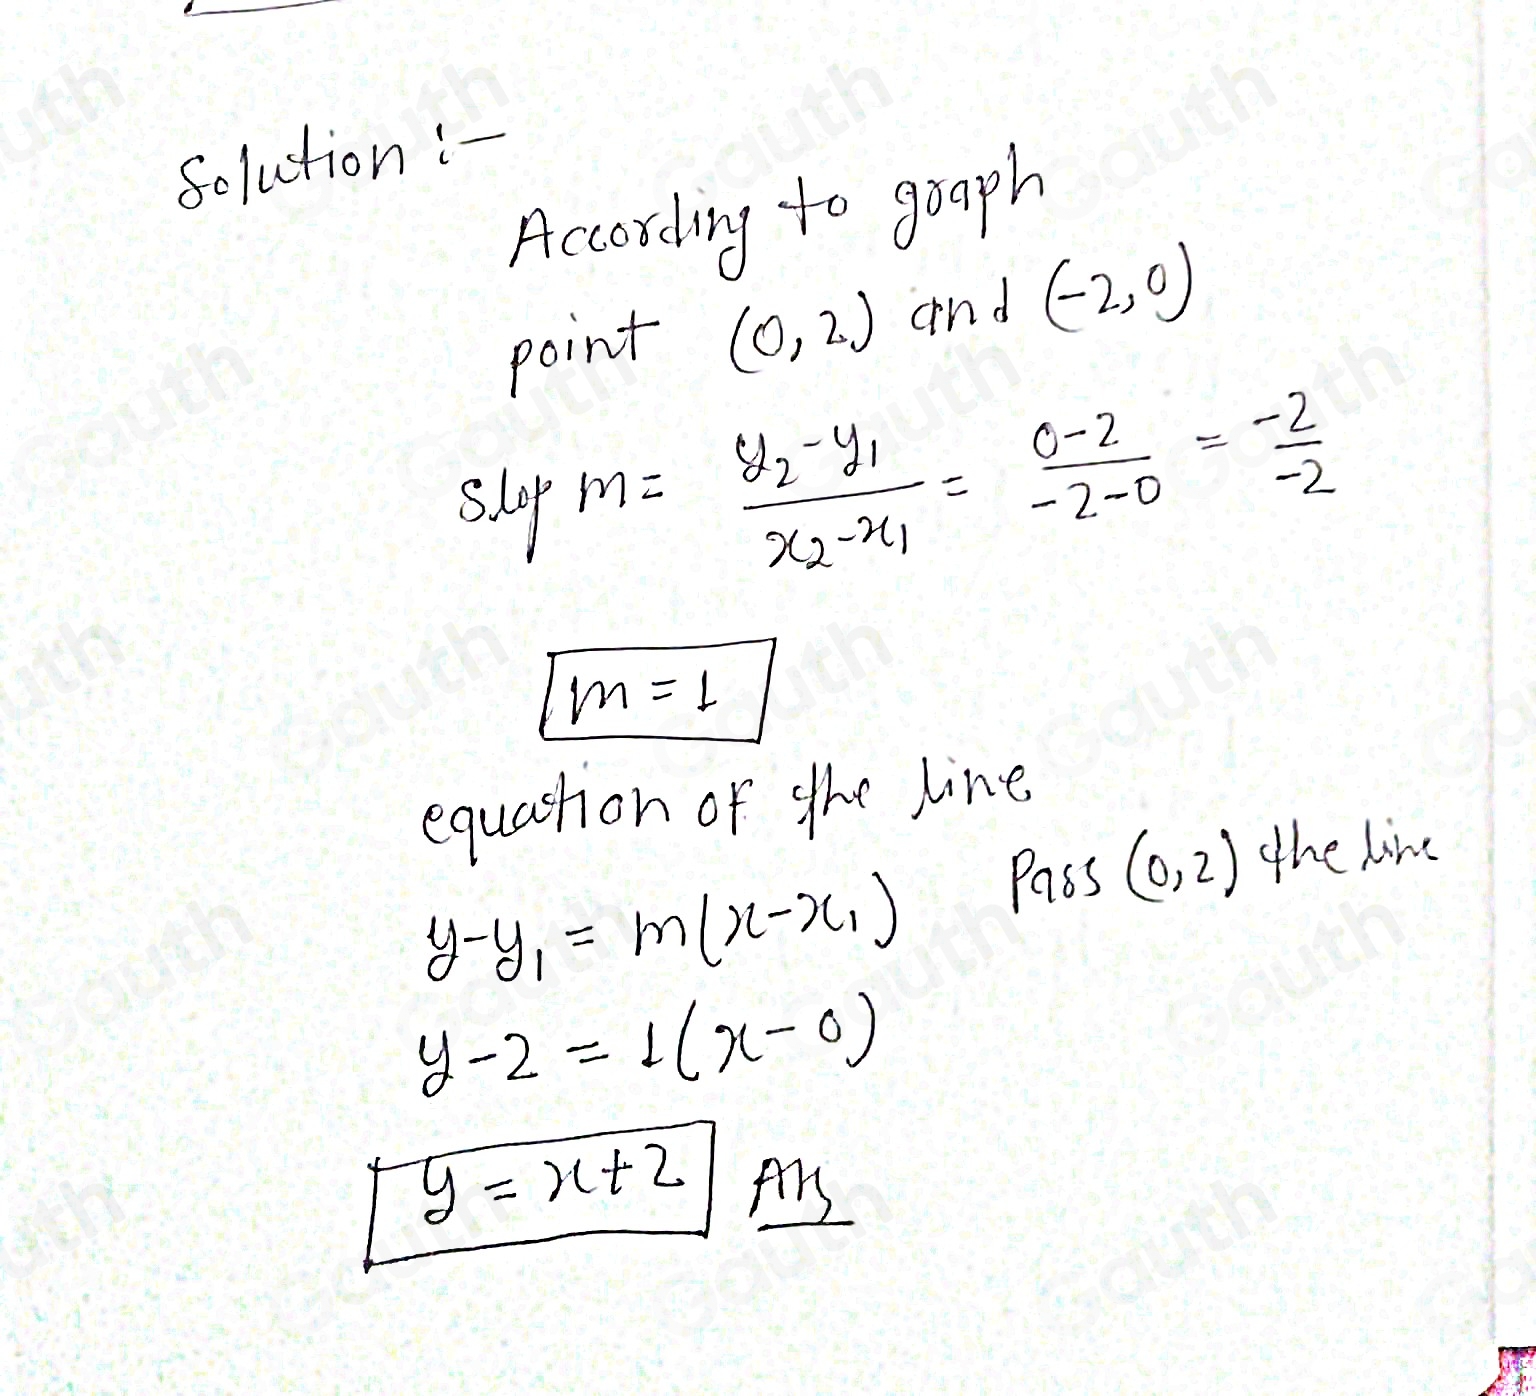 Solution :-
According to graph
point (0, 2) and (-2, 0)
Slop m = y₂-y₁/x₂-x₁ = 0-2/-2-0 = -2/-2
m = 1
equation of the line
Pass (0, 2) the line
y-y₁ = m(x-x₁)
y-2 = 1(x-0)
y = x+2 Ans
Gauth